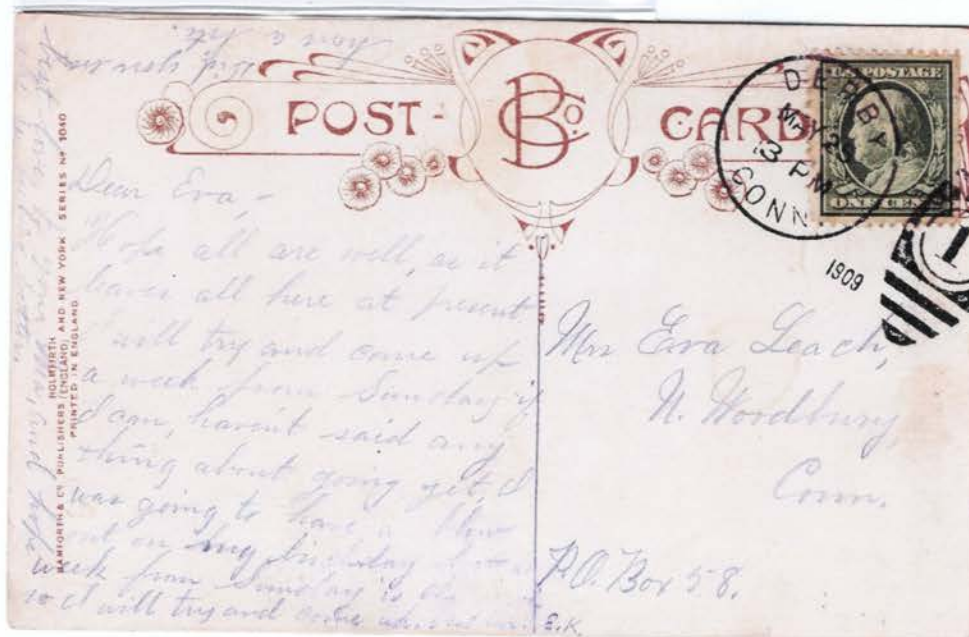 POST CARD
B Co.
U.S. POSTAGE
ONE CENT
DERBY
MAY 2
3 PM
CONN
1909
1
HOLMFIRTH
BAMFORTH & Co PUBLISHERS (ENGLAND) AND NEW YORK SERIES No 3040
PRINTED IN ENGLAND
Dear Eva,-
Hope all are well, as it
leaves all here at present
I will try and come up
a week from Sunday if
I can, havent said any
thing about going yet, I
was going to have a blow
out on my birthday
week from Sunday is
so I will try and come
E.K.
Mrs Eva Leach,
N. Woodbury,
Conn.
P.O. Box 58.